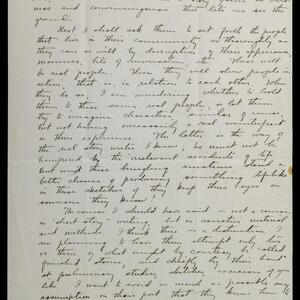 ness and convincingness that lets us see the
ground.
Next I shall ask them to set forth the people
that live in their community, as thoroughly as
they can or will by description of their appearance,
manners, bits of conversation, etc. These will
be real people. Then they will show people in
action, that is, in relation to each other. When
they do so, I am wondering whether to hold
them to these same real people, or let them
try to imagine characters, similar of course,
but not having necessarily a real counterpart
in their experience. The latter is the way of
the real story writer I know; he must not be
hampered by the irrelevant accidents of life.
But won't these beginning stand a
better chance of producing something lifelike
in these sketches if they keep their eyes on
someone they know?
Of course I should have said in not a course
in short story writing, but in narrative material
and methods. I think there is a distinction. I
am planning to have them attempt only two
or three of what might by courtesy be called
"finished" stories, and chiefly try their hand
at preliminary studies, sketches, exercises if you
like. I want to avoid as much as possible any
assumption on their part that they know how to